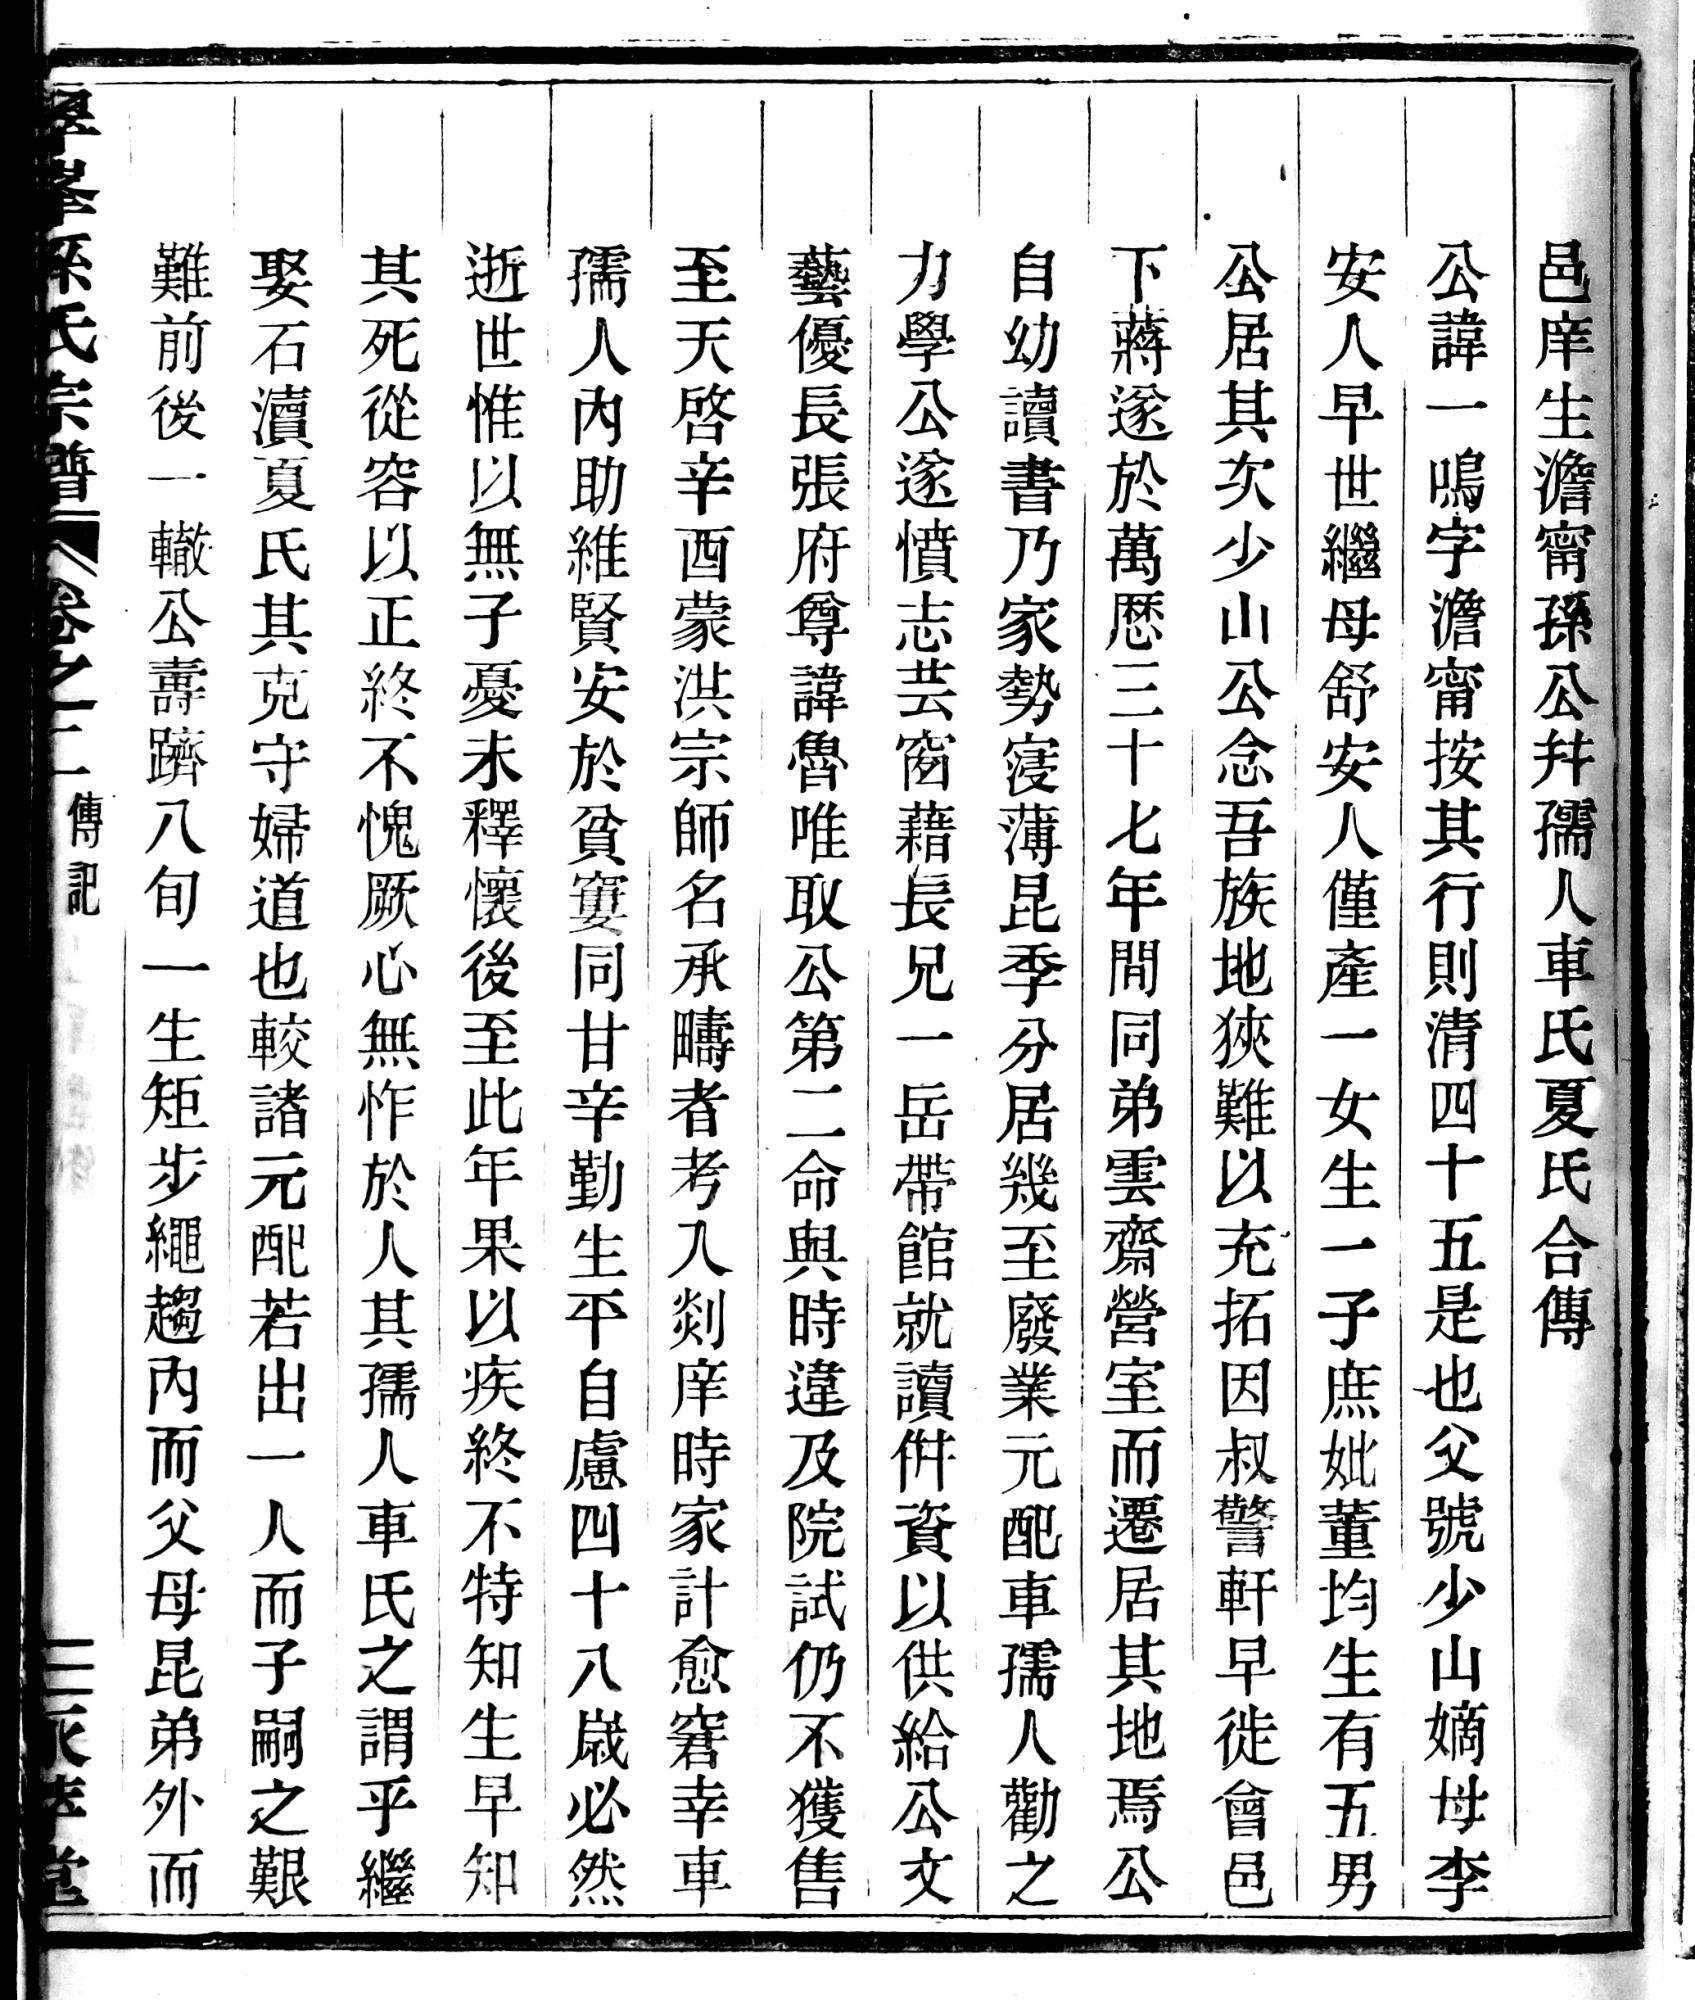 邑庠生澹甯孫公幷孺人車氏夏氏合傳
公諱一鳴字澹甯按其行則清四十五是也父號少山嫡母李
安人早世繼母舒安人僅產一女生一子庶妣董均生有五男
公居其次少山公念吾族地狹難以充拓因叔警軒早徙會邑
下蔣遂於萬厯三十七年間同弟雲齋營室而遷居其地焉公
自幼讀書乃家勢寖薄昆季分居幾至廢業元配車孺人勸之
力學公遂憤志芸窗藉長兄一岳帶館就讀併資以供給公文
藝優長張府尊諱魯唯取公第二命與時違及院試仍不獲售
至天啓辛酉蒙洪宗師名承疇者考入剡庠時家計愈窘幸車
孺人內助維賢安於貧窶同甘辛勤生平自慮四十八歲必然
逝世惟以無子憂未釋懷後至此年果以疾終不特知生早知
其死從容以正終不愧厥心無怍於人其孺人車氏之謂乎繼
娶石瀆夏氏其克守婦道也較諸元配若出一人而子嗣之艱
難前後一轍公壽躋八旬一生矩步繩趨內而父母昆弟外而
孫氏宗譜 卷之二 傳記 二 萃堂